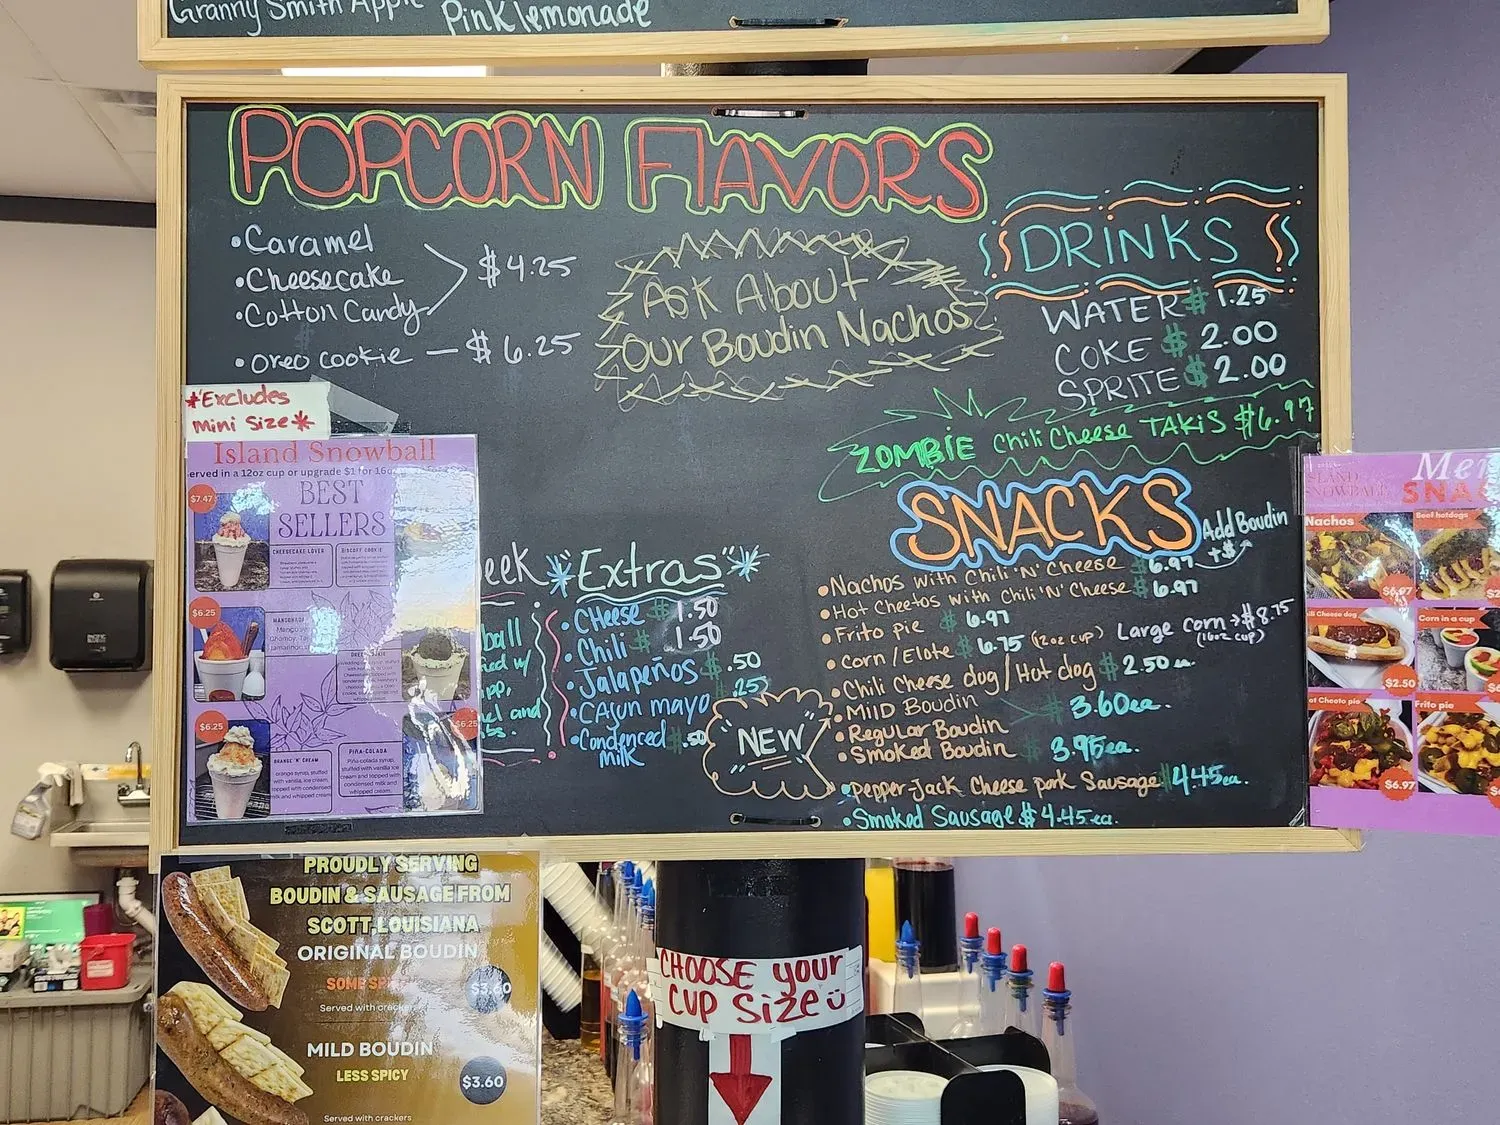 Granny Smith Apple
Pink lemonade
POPCORN FLAVORS
•Caramel
•Cheesecake
•Cotton Candy
$4.25
•Oreo Cookie — $6.25
Ask About
Our Boudin Nachos
DRINKS
WATER $ 1.25
COKE $ 2.00
SPRITE $ 2.00
ZOMBIE Chili Cheese TAKIS $6.97
*Excludes
Mini Size*
Island Snowball
erved in a 12oz cup or upgrade $1 for 16o
BEST
SELLERS
$7.47
CHEESECAKE LOVER
BISCOFF COOKIE
$6.25
$6.25
$6.25
ORANGE 'N' CREAM
orange syrup, stuffed
with vanilla, ice cream
and topped with condensed
milk and whipped cream
PIÑA-COLADA
Piña-colada syrup,
stuffed with vanilla ice
cream and topped with
condensed milk and
whipped cream.
eek
ball
ied w/
pp,
el and
ts.
*"Extras"*
• CHeese $ 1.50
• Chili $ 1.50
• Jalapeños $.50
• CAjun mayo .25
• Condenced $.50
Milk
NEW
SNACKS
Add Boudin
+$
•Nachos with Chili 'N' Cheese $6.97
•Hot Cheetos with Chili 'N' Cheese $6.97
•Frito pie $6.97
•Corn/Elote $6.75 (12oz cup) Large corn→$8.75
(16oz cup)
•Chili Cheese dog/Hot dog $2.50 ea.
•Mild Boudin
•Regular Boudin
$3.60ea.
•Smoked Boudin $3.95ea.
•Pepper-Jack Cheese pork Sausage $4.45ea.
•Smoked Sausage $4.45ea.
SLAND
SNOWBALL
Me
SNA
Nachos
Beef hotdogs
$6.97
$2
ili Cheese dog
Corn in a cup
$2.50
ot Cheeto pie
Frito pie
$6.97
PROUDLY SERVING
BOUDIN & SAUSAGE FROM
SCOTT, LOUISIANA
ORIGINAL BOUDIN
SOME SP
$3.60
Served with crackers
MILD BOUDIN
LESS SPICY
$3.60
Served with crackers
CHOOSE your
CUP SIZE